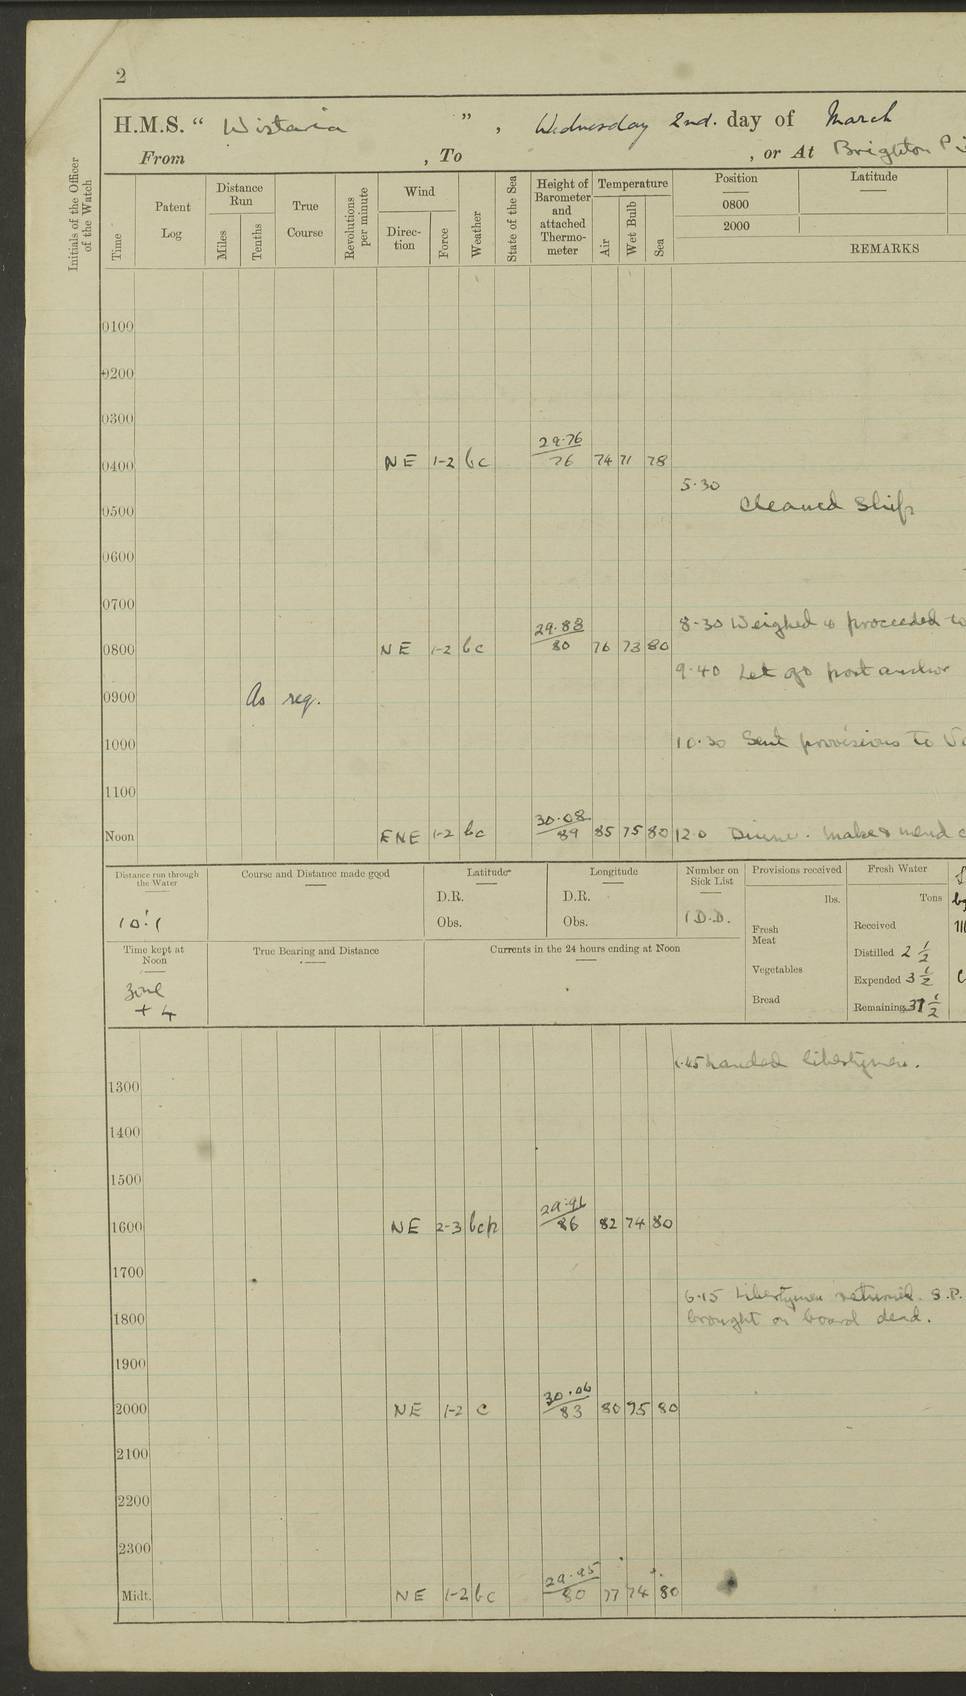 2
H.M.S. “ Wistaria ” , Wednesday 2nd. day of March
From , To , or At Brighton P
Initials of the Officer of the Watch
Time
Patent Log
Distance Run
Miles
Tenths
True Course
Revolutions per minute
Wind
Direc-tion
Force
Weather
State of the Sea
Height of Barometer and attached Thermo-meter
Temperature
Air
Wet Bulb
Sea
Position
0800
2000
Latitude
REMARKS
0100
0200
0300
0400 NE 1-2 bc 29.76 76 74 71 78
5.30
Cleaned Ship
0500
0600
0700
8.30 Weighed & proceeded to
0800 NE 1-2 bc 29.88 80 76 73 80
9.40 Let go port anchor
0900 As req.
1000 10.30 Sent provisions to
1100
Noon ENE 1-2 bc 30.08 89 85 75 80 12.0 Dinner. Make & mend c
Distance run through the Water
10'.1
Course and Distance made good
Latitude
D.R.
Obs.
Longitude
D.R.
Obs.
Number on Sick List
1 D.D.
Provisions received
lbs.
Fresh Meat
Vegetables
Bread
Fresh Water
Tons
Received
Distilled 2 1/2
Expended 3 1/2
Remaining 37 1/2
Time kept at Noon
Zone
+ 4
True Bearing and Distance
Currents in the 24 hours ending at Noon
1.45 Landed libertymen.
1300
1400
1500
1600 NE 2-3 bcp 29.96 86 82 74 80
1700
6.15 Libertymen returned. S.P.
1800 brought on board dead.
1900
2000 NE 1-2 c 30.06 83 80 75 80
2100
2200
2300
Midt. NE 1-2 bc 29.95 80 77 74 80